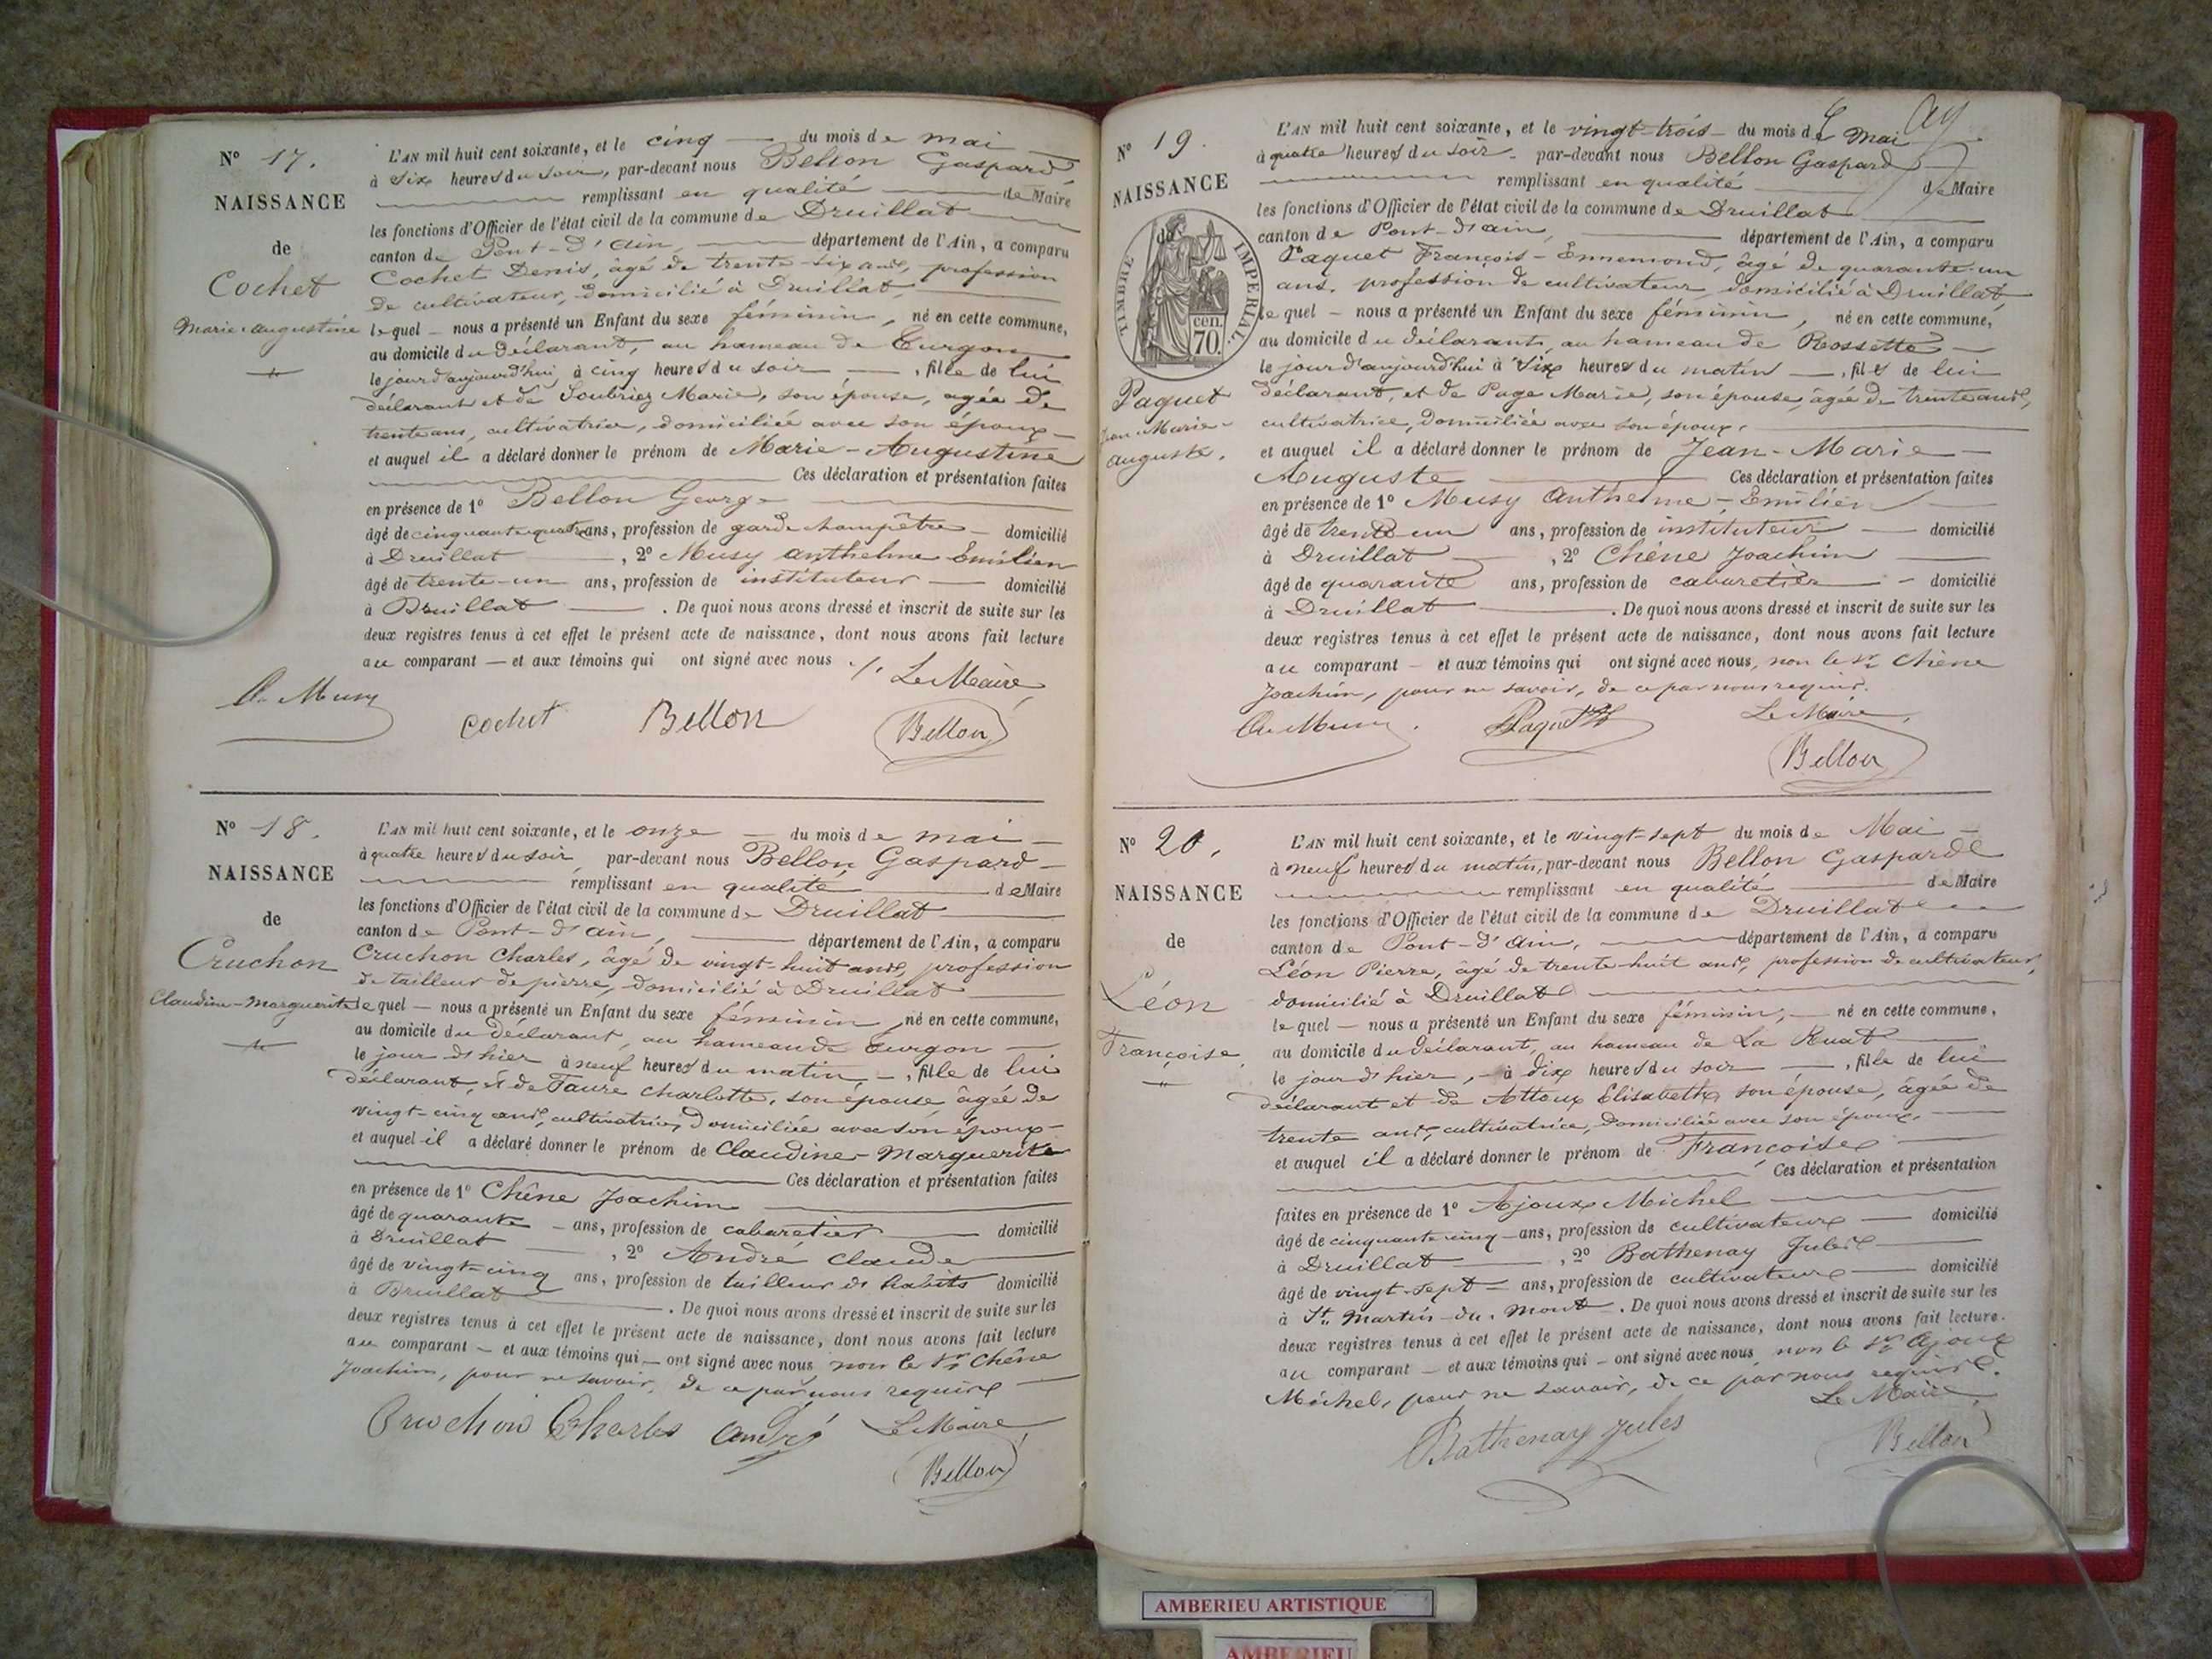 N° 17.
NAISSANCE
de
Cochet
Marie-Augustine
L'AN mil huit cent soixante, et le cinq du mois de mai
à six heures du soir, par-devant nous Bellon Gaspard
remplissant en qualité de Maire
les fonctions d'Officier de l'état civil de la commune de Druillat
canton de Pont-d'ain, département de l'Ain, a comparu
Cochet Denis, âgé de trente-six ans, profession
de cultivateur, domicilié à Druillat,
lequel nous a présenté un Enfant du sexe féminin, né en cette commune,
au domicile du déclarant, au hameau de Turgon
le jour d'aujourd'hui à cinq heures du soir, fille de lui
déclarant et de Marie, son épouse, agée de
trente ans, cultivatrice, domiciliée avec son époux
et auquel il a déclaré donner le prénom de Marie-Augustine
Ces déclaration et présentation faites
en présence de 1° Bellon George
âgé de cinquante quatre ans, profession de garde champêtre domicilié
à Druillat, 2° Musy anthelme Emilien
âgé de trente-un ans, profession de instituteur domicilié
à Druillat. De quoi nous avons dressé et inscrit de suite sur les
deux registres tenus à cet effet le présent acte de naissance, dont nous avons fait lecture
au comparant et aux témoins qui ont signé avec nous ./.
Le Maire
Musy cochet Bellon Bellon
N° 18.
NAISSANCE
de
Cruchon
Claudine-Marguerite
L'AN mil huit cent soixante, et le onze du mois de mai
à quatre heures du soir par-devant nous Bellon Gaspard
remplissant en qualité de Maire
les fonctions d'Officier de l'état civil de la commune de Druillat
canton de Pont-d'ain, département de l'Ain, a comparu
Cruchon Charles, âgé de vingt-huit ans, profession
de tailleur de pierre, domicilié à Druillat
lequel nous a présenté un Enfant du sexe féminin, né en cette commune,
au domicile du déclarant, au hameau de Turgon
le jour d'hier à neuf heures du matin, fille de lui
déclarant, et de Faure Charlotte, son épouse âgée de
vingt-cinq ans, cultivatrice, Domiciliée avec son époux
et auquel il a déclaré donner le prénom de Claudine-Marguerite
Ces déclaration et présentation faites
en présence de 1° Chêne Joachim
âgé de quarante ans, profession de cabaretier domicilié
à Druillat, 2° André Claude
âgé de vingt-cinq ans, profession de tailleur d'habits domicilié
à Druillat. De quoi nous avons dressé et inscrit de suite sur les
deux registres tenus à cet effet le présent acte de naissance, dont nous avons fait lecture
au comparant et aux témoins qui ont signé avec nous, non le Sr Chêne
Joachim, pour ne savoir, de ce par nous requis
Cruchon Charles André Le Maire
Bellon
N° 19.
NAISSANCE
de
TIMBRE IMPERIAL.
70. cen.
Paquet
Jean-Marie-
Auguste.
L'AN mil huit cent soixante, et le vingt-trois du mois de Mai
à quatre heures du soir par-devant nous Bellon Gaspard
remplissant en qualité de Maire
les fonctions d'Officier de l'état civil de la commune de Druillat
canton de Pont-d'ain, département de l'Ain, a comparu
Paquet François-Ennemond, âgé de quarante-un
ans, profession de cultivateur, domicilié à Druillat
lequel nous a présenté un Enfant du sexe féminin, né en cette commune,
au domicile du déclarant au hameau de Rossette
le jour d'aujourd'hui à six heures du matin, fils de lui
déclarant, et de Page Marie, son épouse, âgée de trente ans,
cultivatrice, domiciliée avec son époux,
et auquel il a déclaré donner le prénom de Jean-Marie-
Auguste Ces déclaration et présentation faites
en présence de 1° Musy Anthelme-Emilien
âgé de trente-un ans, profession de instituteur domicilié
à Druillat, 2° Chêne Joachim
âgé de quarante ans, profession de cabaretier domicilié
à Druillat. De quoi nous avons dressé et inscrit de suite sur les
deux registres tenus à cet effet le présent acte de naissance, dont nous avons fait lecture
au comparant et aux témoins qui ont signé avec nous, non le Sr Chêne
Joachim, pour ne savoir, de ce par nous requis.
Musy Paquet Le Maire,
Bellon
N° 20.
NAISSANCE
de
Léon
Françoise
L'AN mil huit cent soixante, et le vingt-sept du mois de Mai
à neuf heures du matin, par-devant nous Bellon Gaspard
remplissant en qualité de Maire
les fonctions d'Officier de l'état civil de la commune de Druillat
canton de Pont-d'Ain, département de l'Ain, a comparu
Léon Pierre, âgé de trente-huit ans, profession de cultivateur,
domicilié à Druillat
lequel nous a présenté un Enfant du sexe féminin, né en cette commune,
au domicile du déclarant, au hameau de La Ruat
le jour d'hier, à dix heures du soir, fille de lui
déclarant et de Attoux Elisabeth, son épouse, âgée de
trente ans, cultivatrice, Domiciliée avec son époux,
et auquel il a déclaré donner le prénom de Françoise
Ces déclaration et présentation
faites en présence de 1° Ajoux Michel
âgé de cinquante cinq ans, profession de cultivateur domicilié
à Druillat, 2° Bathenay Jules
âgé de vingt-sept ans, profession de cultivateur domicilié
à St. Martin-du-Mont. De quoi nous avons dressé et inscrit de suite sur les
deux registres tenus à cet effet le présent acte de naissance, dont nous avons fait lecture.
au comparant et aux témoins qui ont signé avec nous non le Sr Ajoux
Michel, pour ne savoir, de ce par nous requis.
Le Maire
Bathenay Jules Bellon
AMBERIEU ARTISTIQUE
AMBERIEU